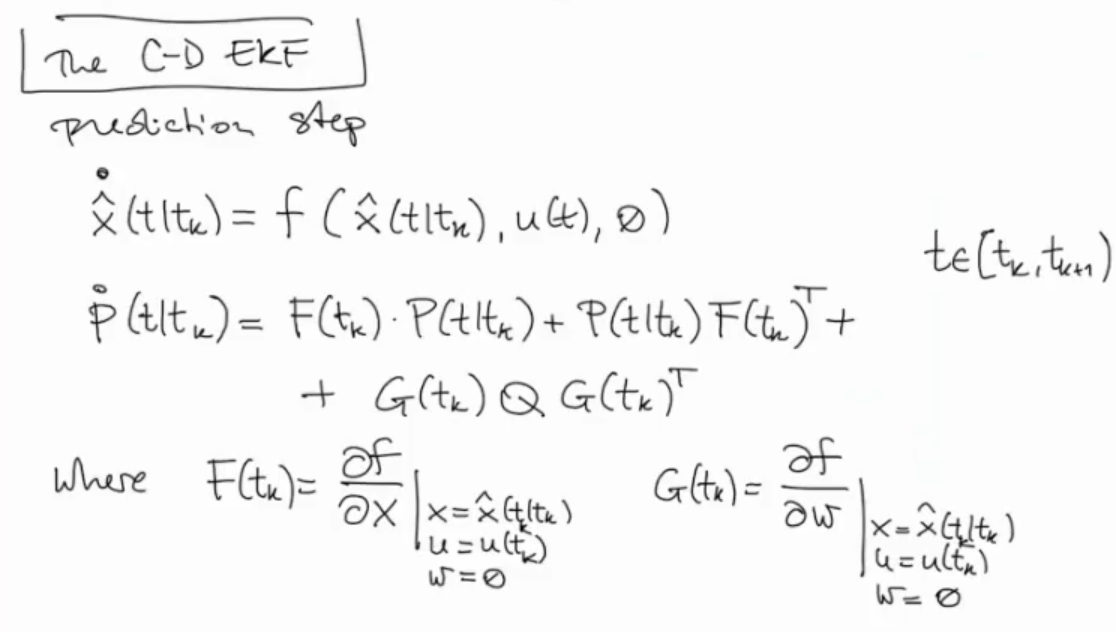 The C-D EKF
prediction step
x̂̇(t|tₖ) = f(x̂(t|tₖ), u(t), ∅)
t∈[tₖ, tₖ₊₁)
Ṗ(t|tₖ) = F(tₖ)·P(t|tₖ) + P(t|tₖ) F(tₖ)ᵀ +
+ G(tₖ) Q G(tₖ)ᵀ
where F(tₖ) = ∂f/∂x | x = x̂(tₖ|tₖ) u = u(tₖ) w = ∅
G(tₖ) = ∂f/∂w | x = x̂(tₖ|tₖ) u = u(tₖ) w = ∅